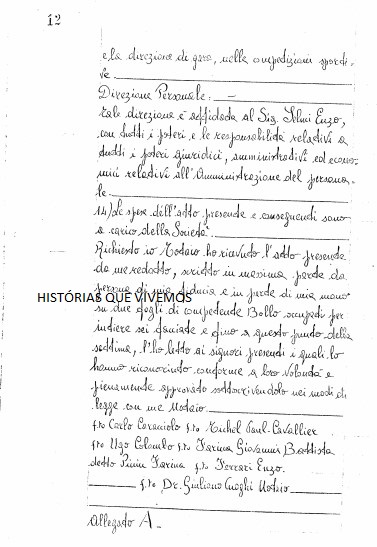 12
e, la direzione di gara, nelle competizioni sporti-
ve
Direzione Personale: —
tale direzione è affidata al Sig. Selmi Enzo,
con tutti i poteri e le responsabilità relative a
tutti i poteri giuridici, amministrativi ed econo-
mici relativi all'Amministrazione del persona-
le
14) Le spese dell'atto presente e conseguenti sono
a carico della Società.
Richiesto io Notaro ho ricevuto l'atto presente
da me redatto, scritto in massima parte da
HISTÓRIAS QUE VIVEMOS
persona di mia fiducia e in parte di mia mano
su due fogli di competente Bollo occupati per
intiere sei facciate e fino a questo punto della
settima, l'ho letto ai signori presenti i quali lo
hanno riconosciuto conforme a loro volontà e
pienamente approvato sottoscrivendolo nei modi di
legge con me Notaio
f.to Carlo Caraciolo f.to Michel Paul-Cavallier
f.to Ugo Colombo f.to Farina Giovanni Battista
detto Pinin Farina f.to Ferrari Enzo.
f.to Dr. Giuliano Cuoghi Notaio
Allegato A -